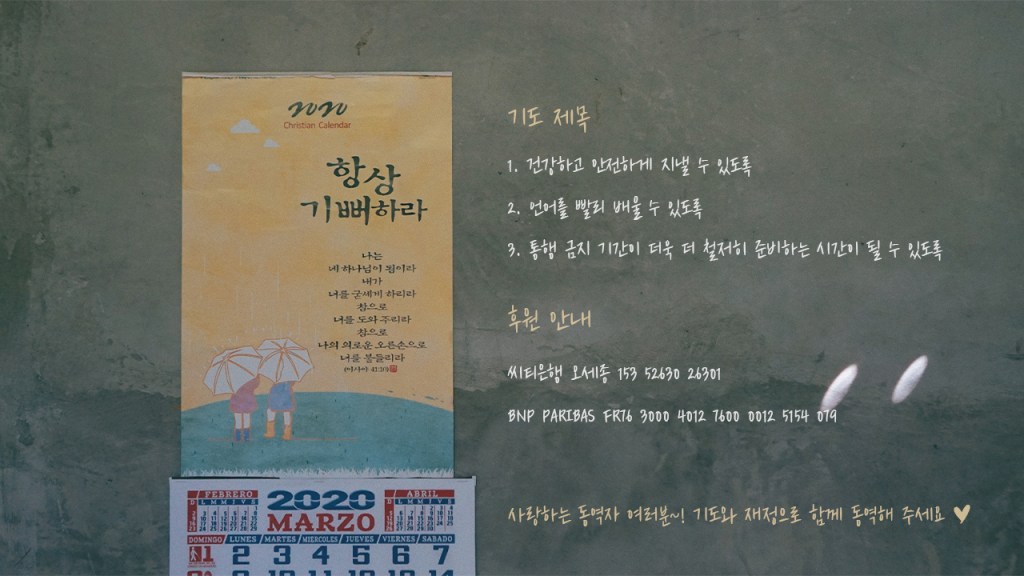 2020
Christian Calendar
항상
기뻐하라
나는
네 하나님이 됨이라
내가
너를 굳세게 하리라
참으로
너를 도와 주리라
참으로
나의 의로운 오른손으로
너를 붙들리라
(이사야 41:10)
FEBRERO
2020
ABRIL
MARZO
DOMINGO LUNES MARTES MIERCOLES JUEVES VIERNES SABADO
1 2 3 4 5 6 7
기도 제목
1. 건강하고 안전하게 지낼 수 있도록
2. 언어를 빨리 배울 수 있도록
3. 통행 금지 기간이 더욱 더 철저히 준비하는 시간이 될 수 있도록
후원 안내
씨티은행 오세종 153 52630 26301
BNP PARIBAS FR76 3000 4012 7600 0012 5154 079
사랑하는 동역자 여러분~! 기도와 재정으로 함께 동역해 주세요